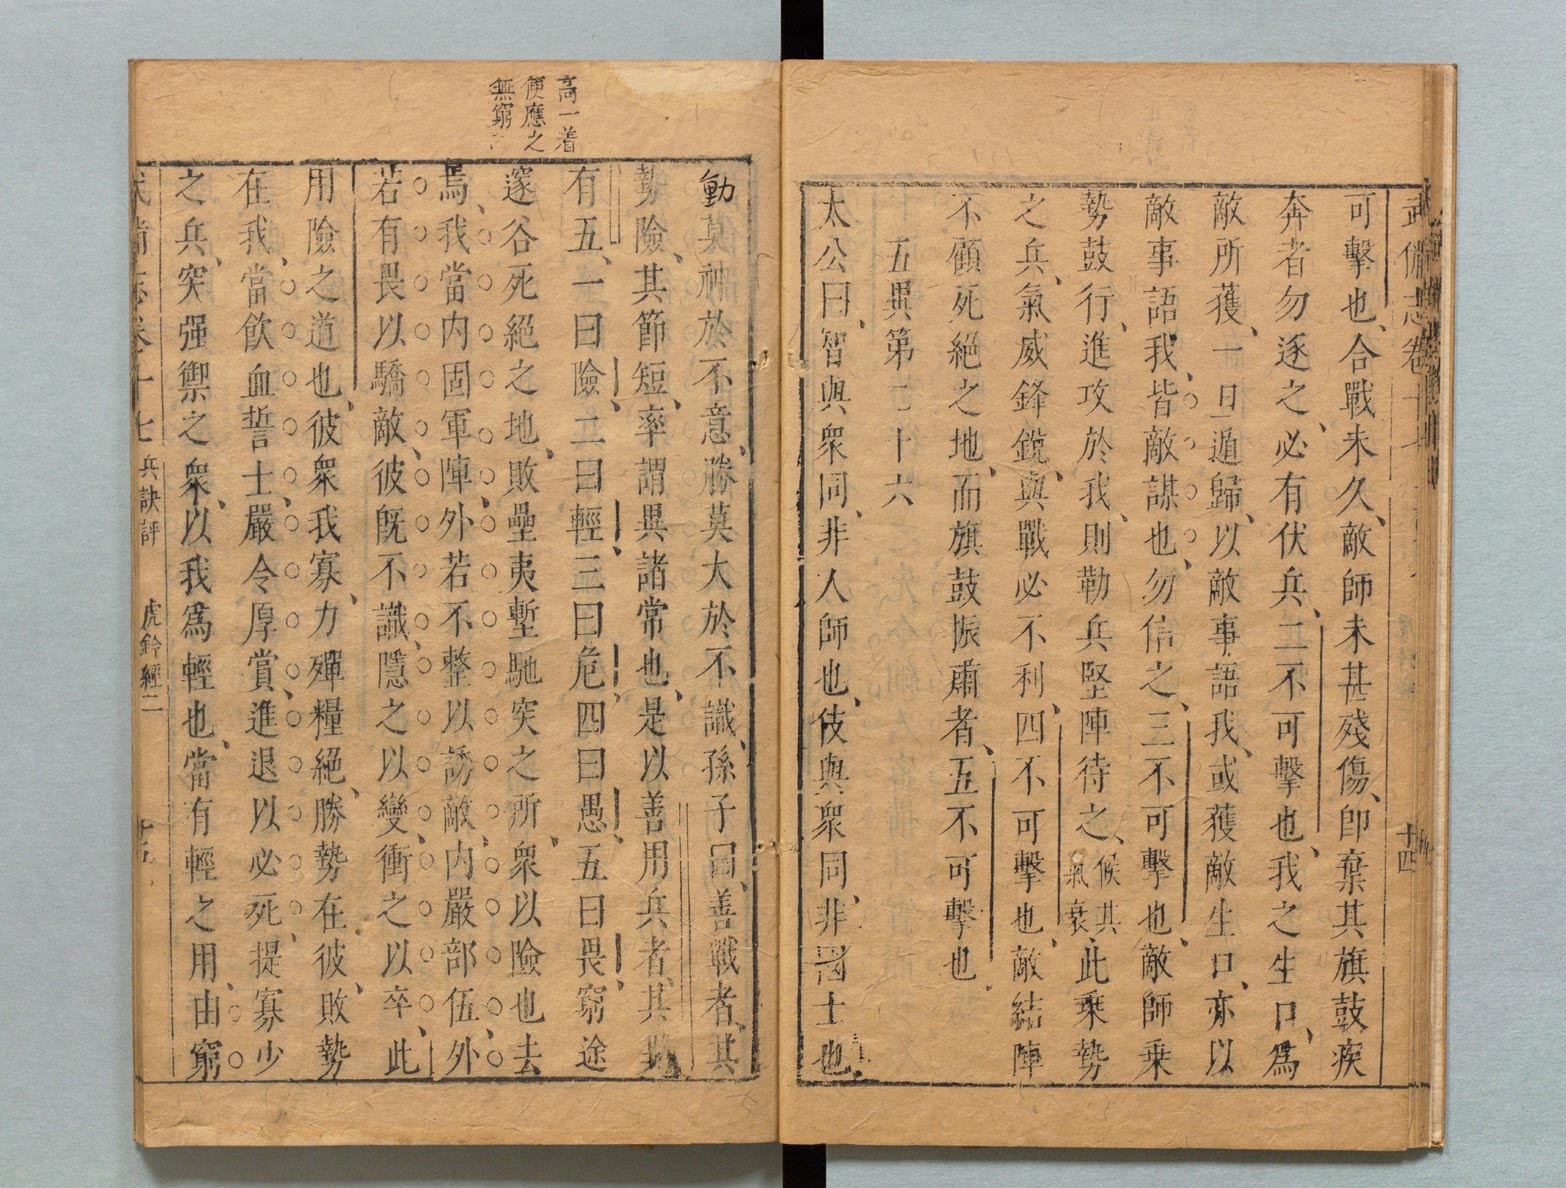 武備志卷十七
十四
可擊也、合戰未久、敵師未甚殘傷、卽棄其旗鼓疾
奔者勿逐之、必有伏兵、二不可擊也、我之生口、爲
敵所獲、一旦遁歸、以敵事語我、或獲敵生口、亦以
敵事語我、皆敵謀也、勿信之、三不可擊也、敵師乘
勢鼓行、進攻於我、則勒兵堅陣待之、候其氣衰、此乘勢
之兵、氣威鋒銳、與戰必不利、四不可擊也、敵結陣
不顧死絕之地、而旗鼓振肅者、五不可擊也
五異第二十六
太公曰、智與衆同、非人師也、伎與衆同、非國士也、
動莫神於不意、勝莫大於不識、孫子曰、善戰者、其
勢險、其節短、率謂異諸常也、是以善用兵者、其異
高一着
便應之
無窮
有五、一曰險、二曰輕、三曰危、四曰愚、五曰畏、窮途
邃谷死絕之地、敗壘夷塹馳突之所、衆以險也去
焉、我當内固軍陣、外若不整以誘敵、内嚴部伍、外
若有畏以驕敵、彼旣不識、隱之以變、衝之以卒、此
用險之道也、彼衆我寡、力殫糧絕、勝勢在彼、敗勢
在我、當飲血誓士、嚴令厚賞、進退以必死、提寡少
之兵、突强禦之衆、以我爲輕也、當有輕之用、由窮
武備志卷十七 兵訣評 虎鈐經二
十五